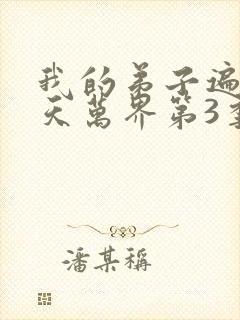 我的弟子遍
天萬界第3季
潘某稱